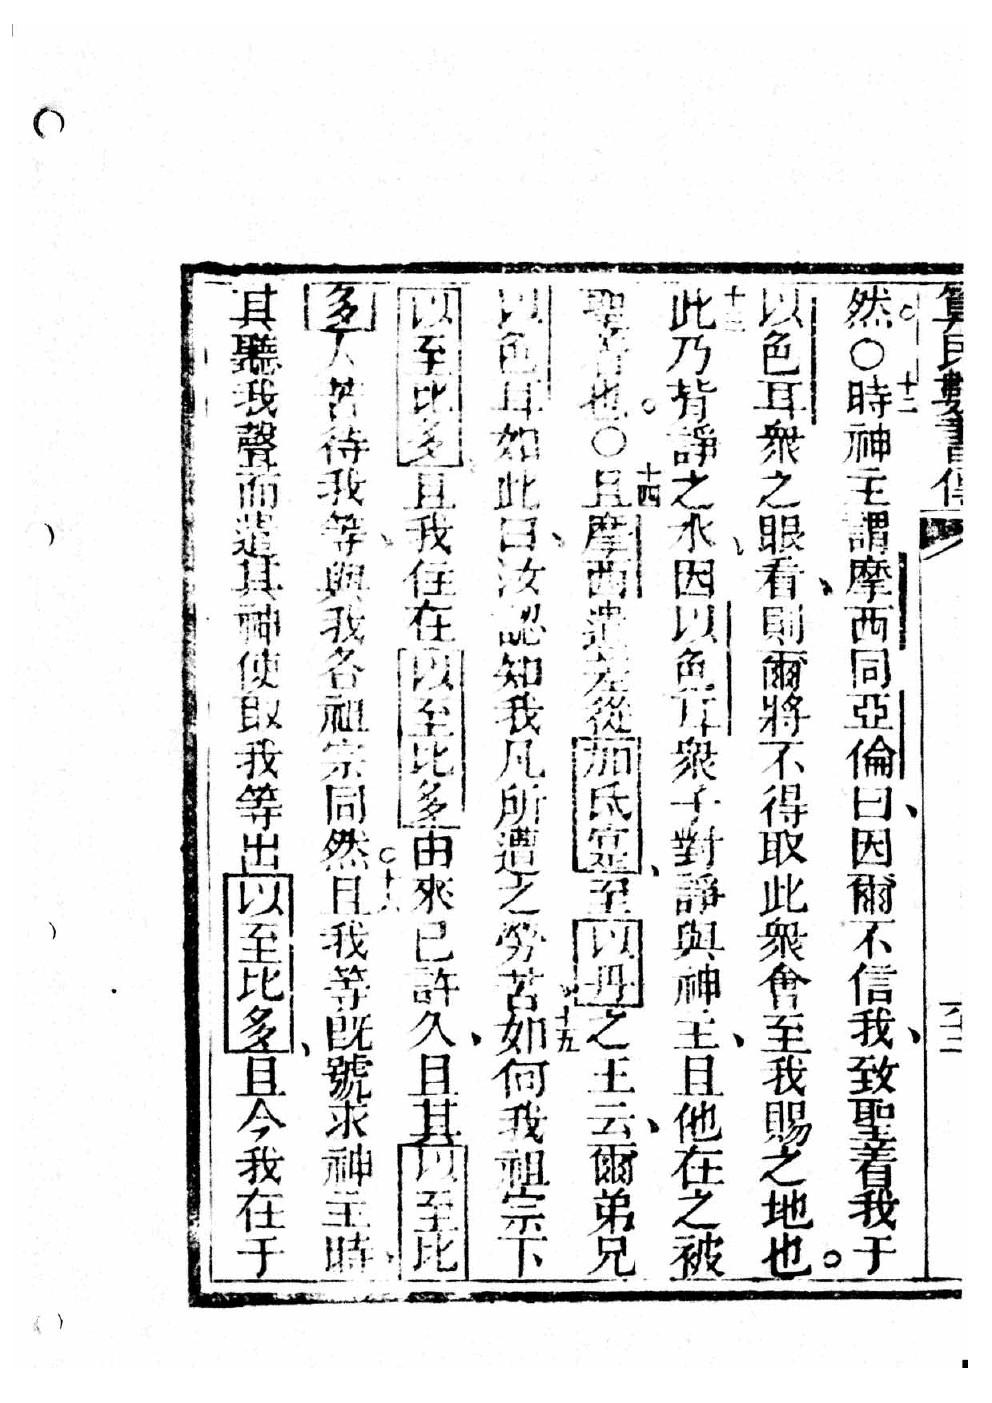 算民數書傳
二十
然。○十二時神主謂摩西同亞倫曰、因爾不信我、致聖着我于
以色耳衆之眼看、則爾將不得取此衆會至我賜之地也。
十三此乃背諍之水、因以色耳衆子對諍與神主、且他在之被
聖着也。○十四且摩西遣差從加氐寔、至以丹之王云、爾弟兄
以色耳如此曰、汝認知我凡所遭之勞苦、十五如何我祖宗下
以至比多、且我住在以至比多由來已許久、且其以至比
多人苦待我等、與我各祖宗同然。十六且我等旣號求神主時、
其聽我聲而遣其神使取我等出以至比多、且今我在于